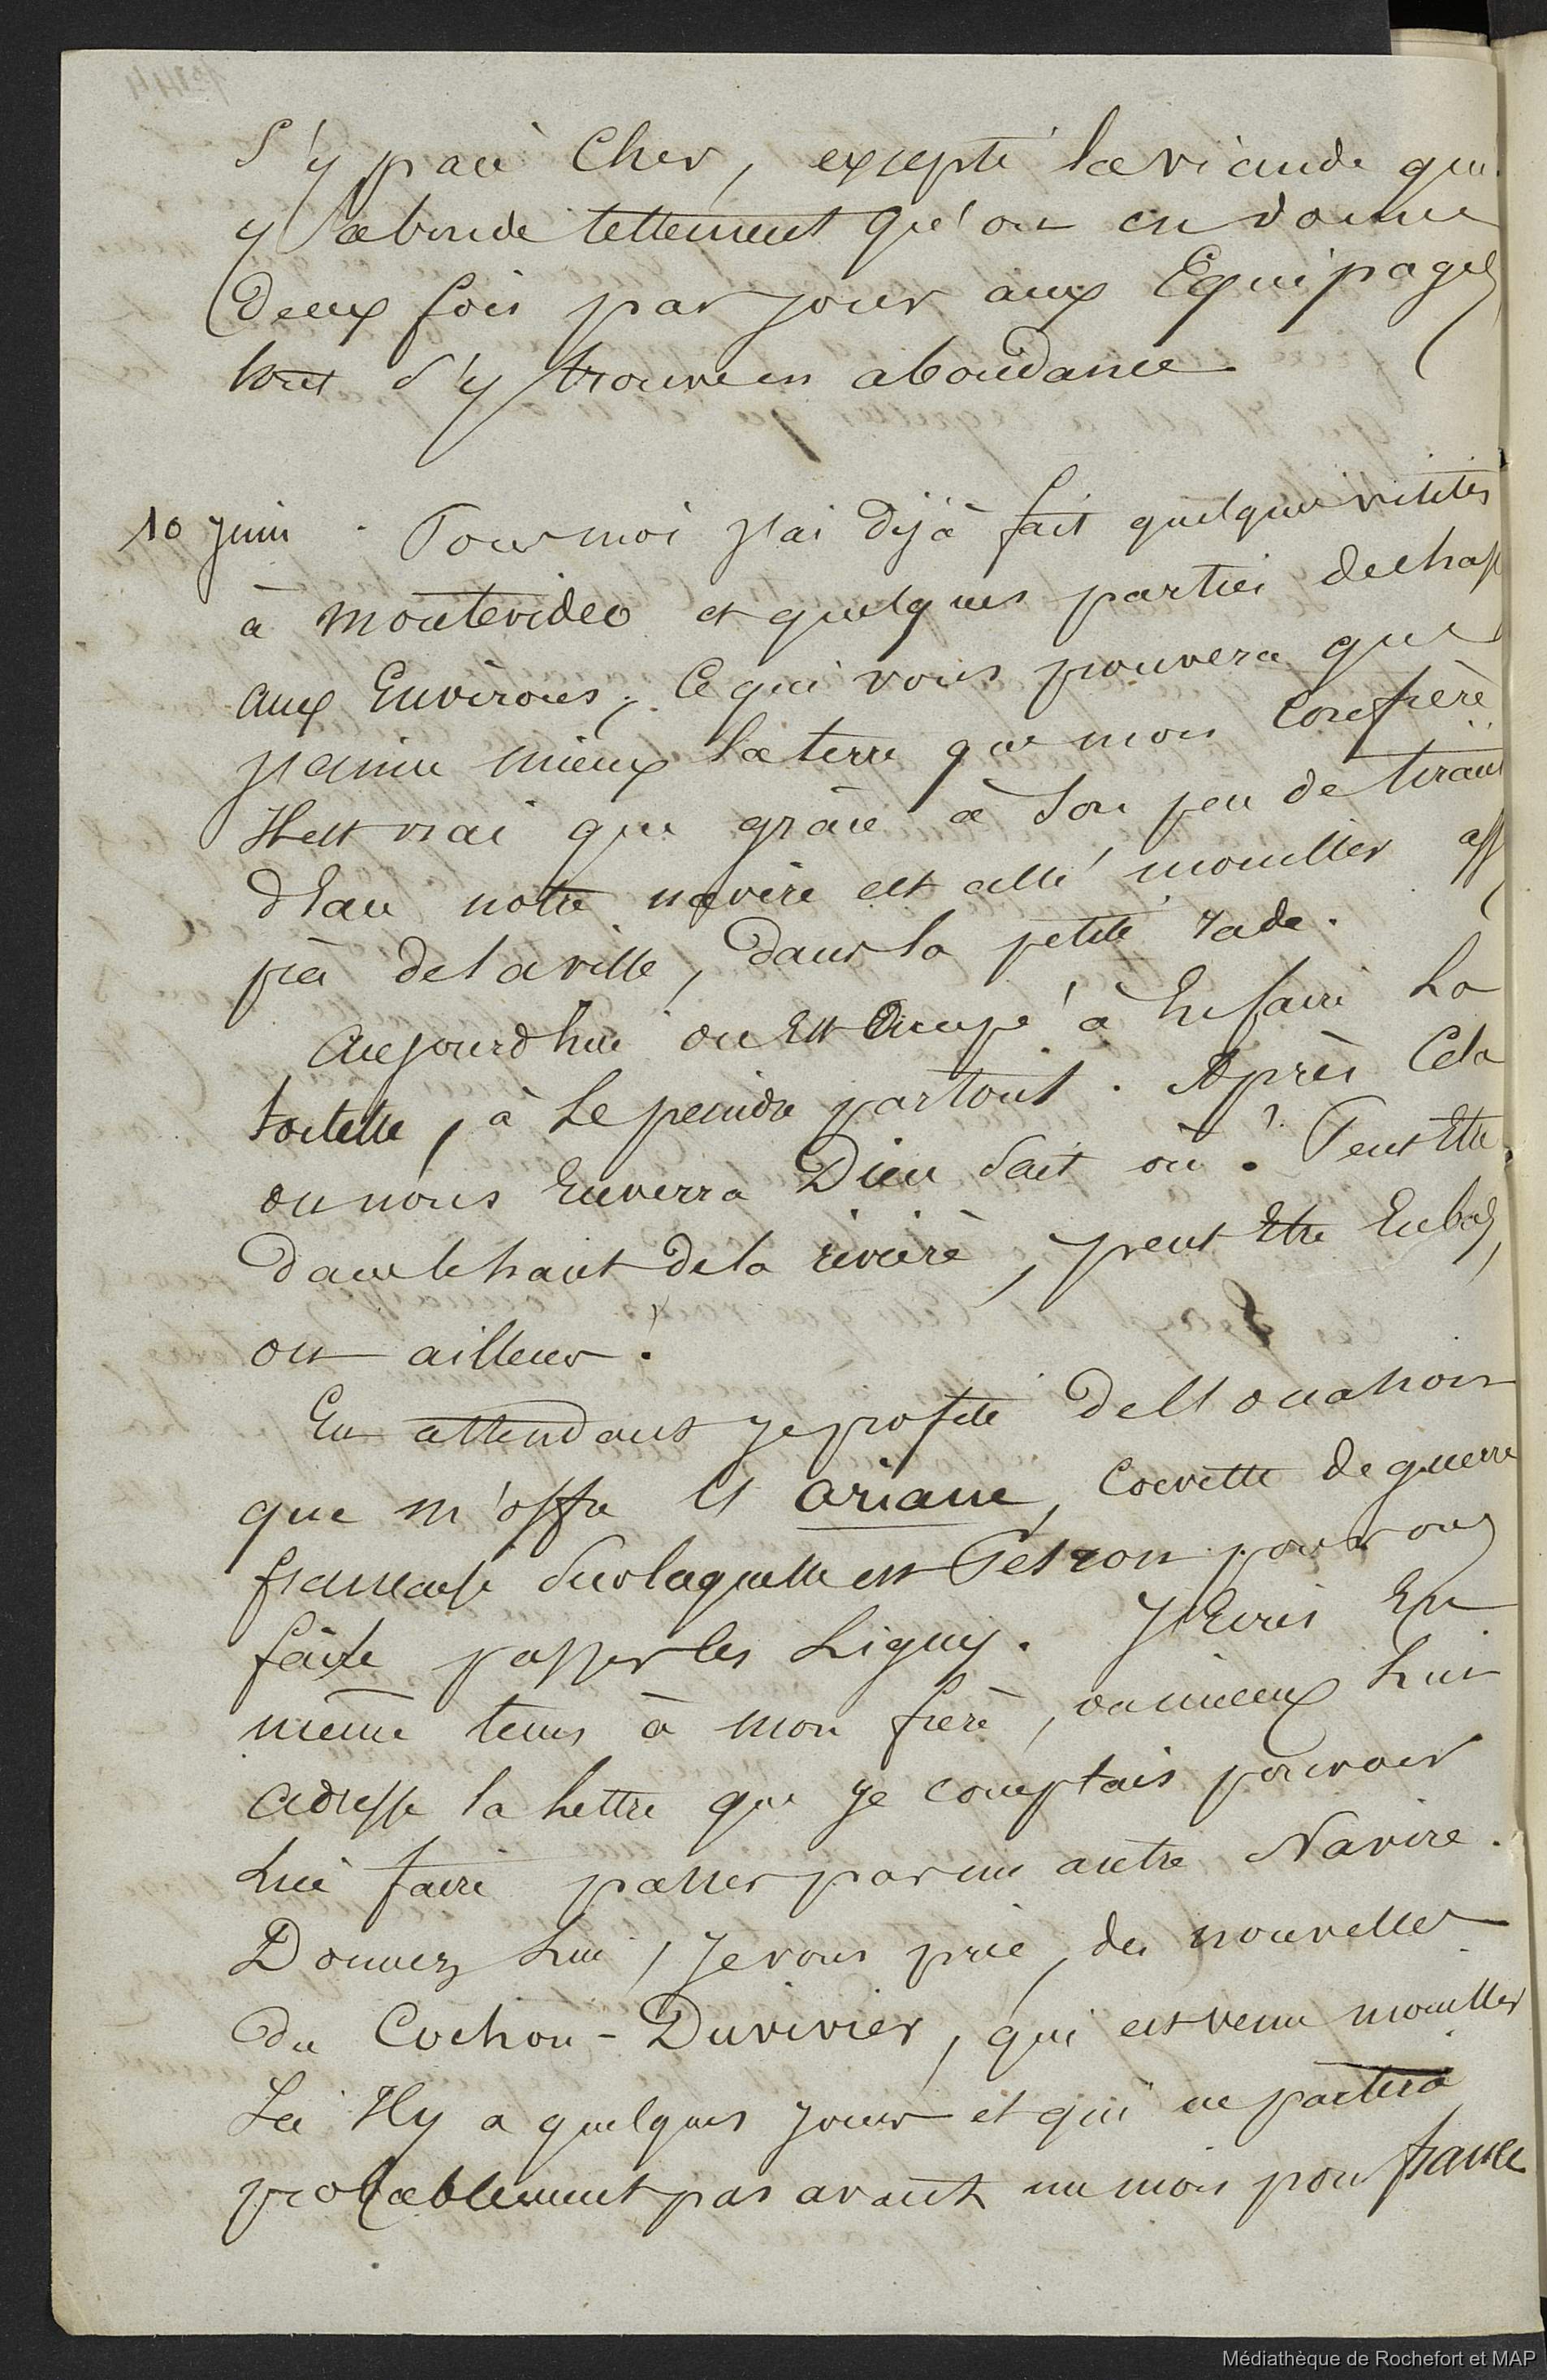 S'y paie Cher, excepté la viande qui
y abonde tellement qu'on en donne
deux fois par jour aux Equipages
tout s'y trouve en abondance
10 Juin. Pour moi j'ai déjà fait quelques visites
à Montevideo et quelques parties de chasse
aux Environs; Ce qui vous prouvera que
j'aime mieux la terre que mon Confrère
Il est vrai que grâce à Son peu de tirant
d'Eau notre navire est allé mouiller ass
près de la ville, dans la petite rade.
Aujourd'hui on Est Occupé à En faire la
toilette, à Le peindre partout. Après Cela
on nous Enverra Dieu Sait où? Peut Etre
dans le haut de la rivière, peut Etre En bas,
ou ailleurs!
En attendant je profite de l'occasion
que m'offre l'Ariane, Corvette de guerre
française Sur laquelle est Penzon pour vous
faire passer les Lignes. J'Ecris En
même tems à mon frère, ou mieux Lui
adresse la Lettre que je comptais pouvoir
Lui faire passer par un autre Navire.
Donnez Lui, je vous prie, des nouvelles
du Cochon-Duvivier, qui est venu mouiller
Ici Il y a quelques jours et qui ne partira
probablement pas avant un mois pour france
Médiathèque de Rochefort et MAP